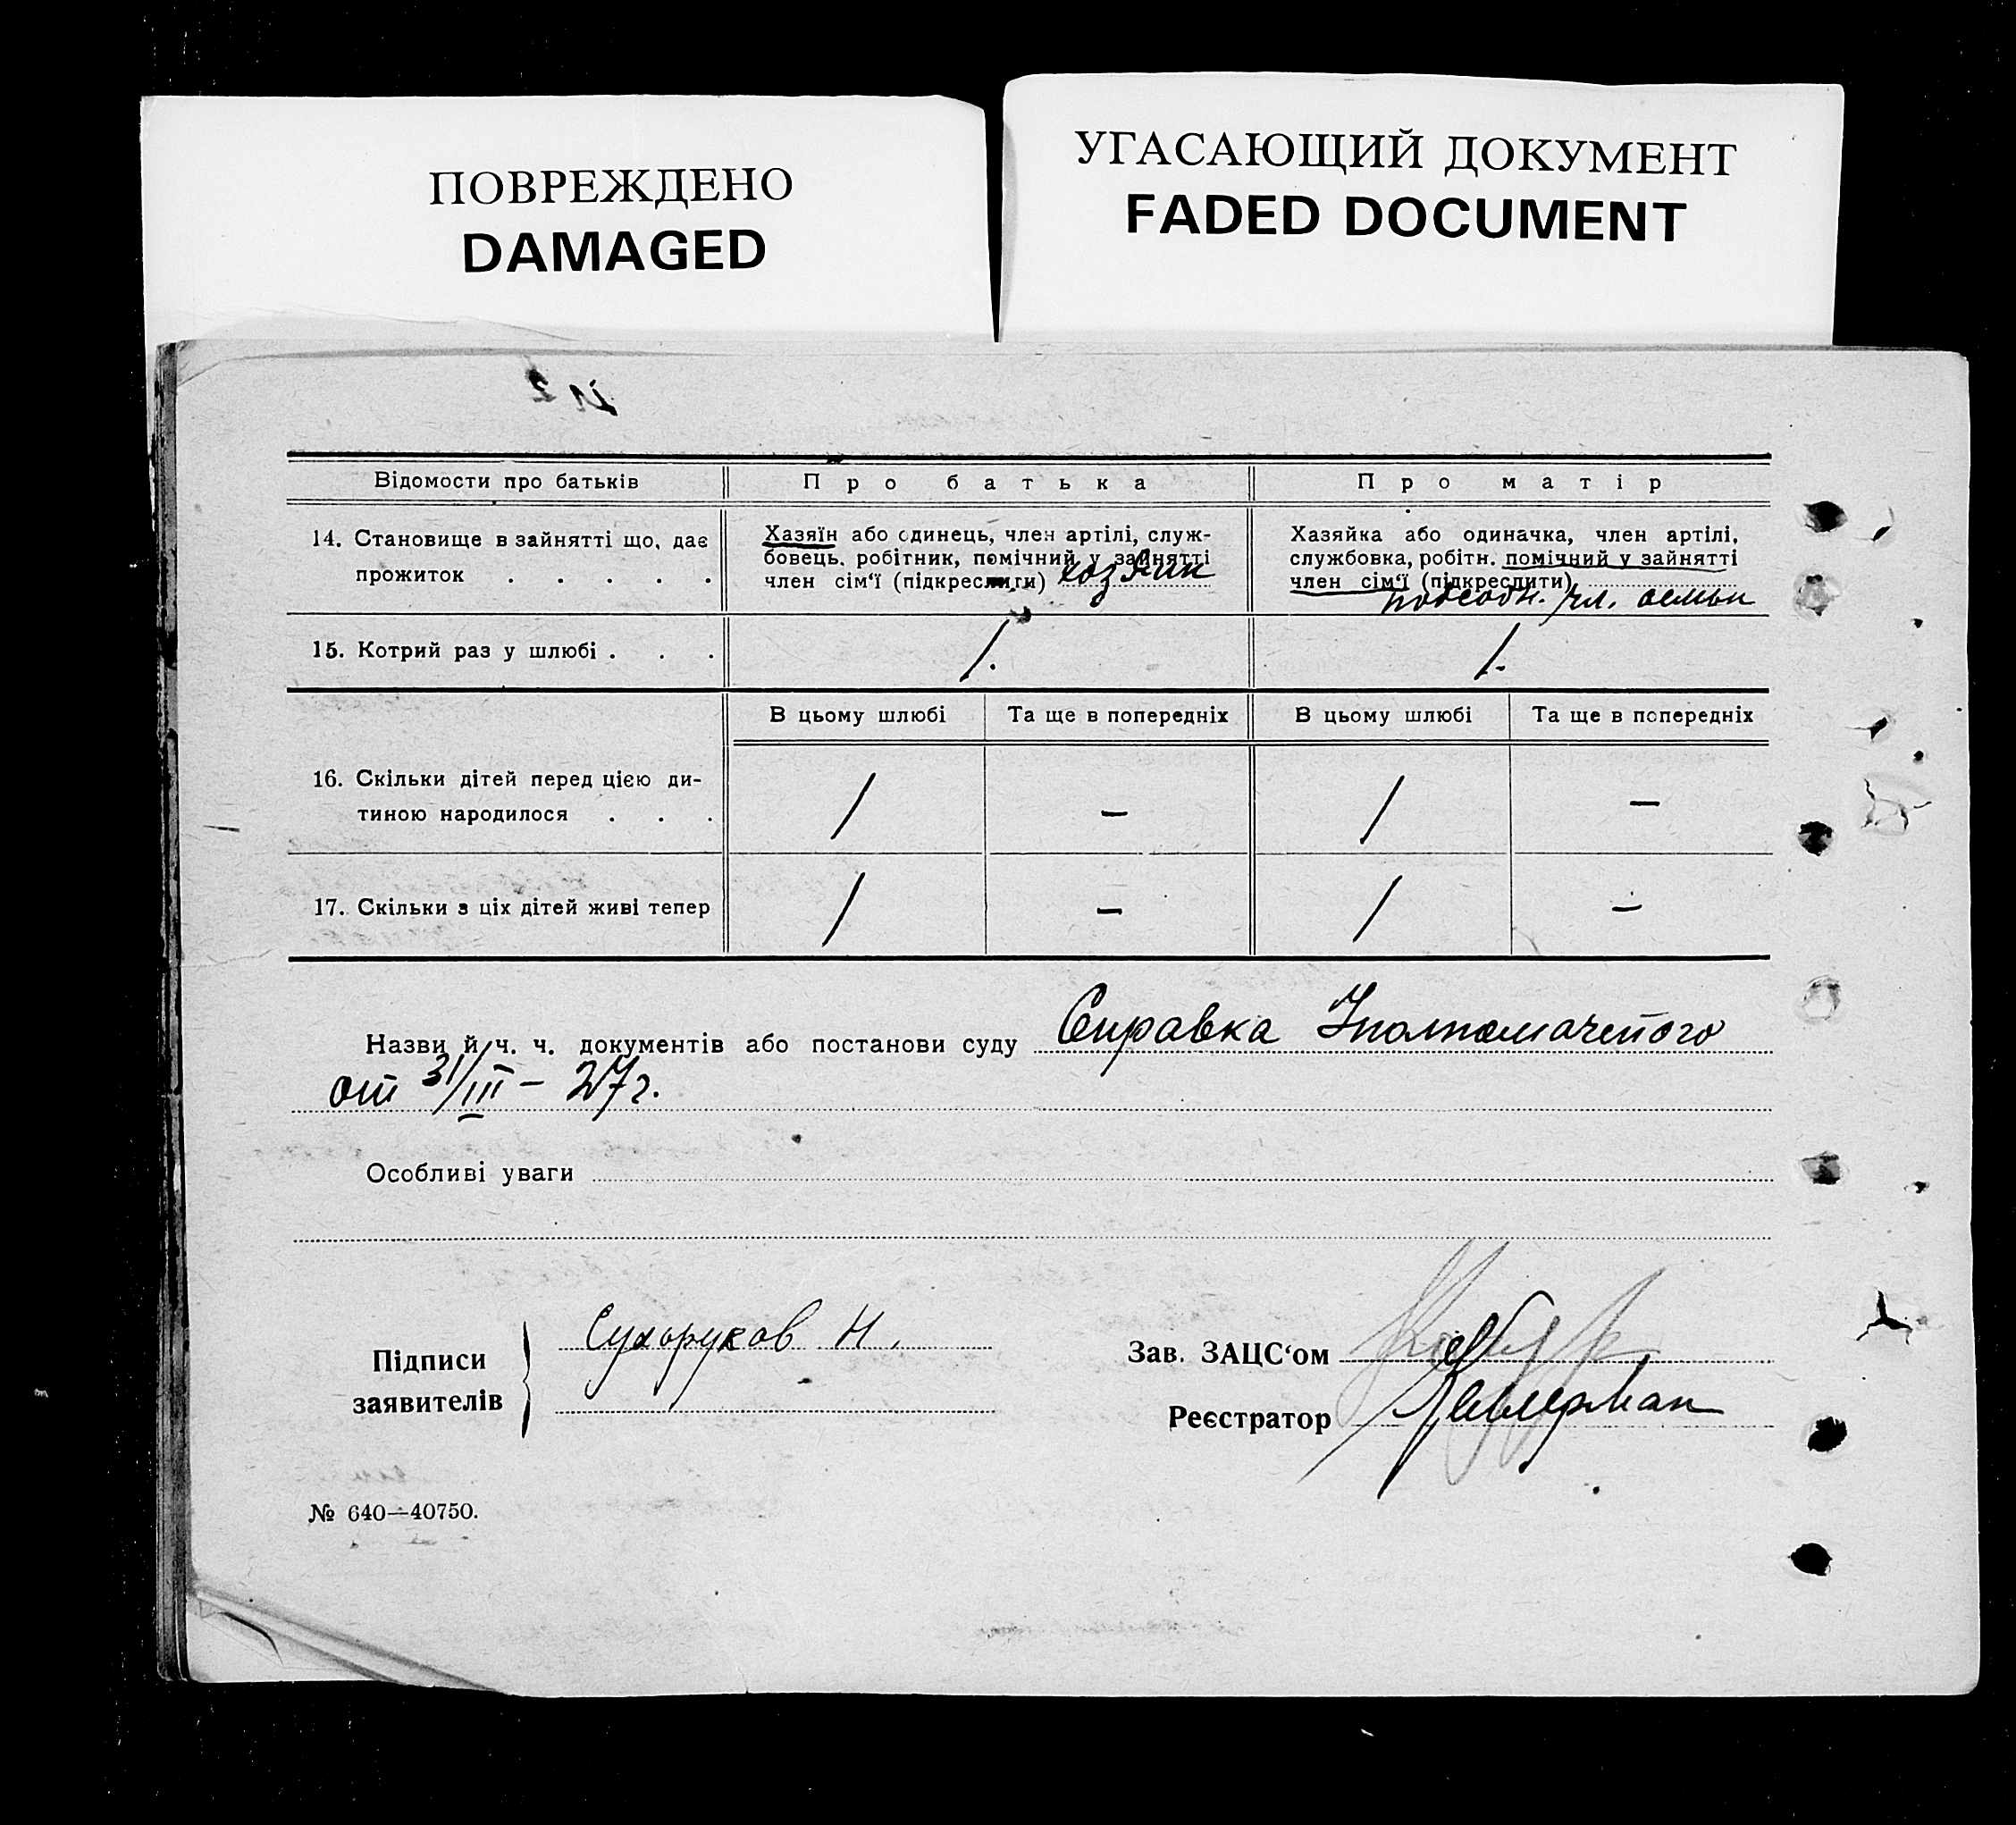 ПОВРЕЖДЕНО
DAMAGED
УГАСАЮЩИЙ ДОКУМЕНТ
FADED DOCUMENT
Відомости про батьків
Про батька
Про матір
14. Становище в зайнятті що, дає
прожиток . . . . .
Хазяїн або одинець, член артілі, служ-
бовець, робітник, помічний у зайнятті
член сім'ї (підкреслити) хозяин
Хазяйка або одиначка, член артілі,
службовка, робітн. помічний у зайнятті
член сім'ї (підкреслити)
подсобн. чл. семьи
15. Котрий раз у шлюбі . . .
1.
1.
В цьому шлюбі
Та ще в попередніх
В цьому шлюбі
Та ще в попередніх
16. Скільки дітей перед цією ди-
тиною народилося . . .
1
—
1
—
17. Скільки з ціх дітей живі тепер
1
—
1
—
Назви й ч. ч. документів або постанови суду Справка
от 31/III — 27 г.
Особливі уваги
Підписи
заявителів
Сухоруков Н.
Зав. ЗАЦС'ом
Реєстратор
№ 640—40750.